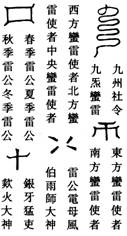 九州社令
九炁蠻雷
東方蠻雷使者
南方蠻雷使者
西方蠻雷使者北方蠻
雷使者中央蠻雷使者
雷公電母風
伯雨師大神
春季雷公夏季雷公
秋季雷公冬季雷公
銀牙猛吏
欻火大神